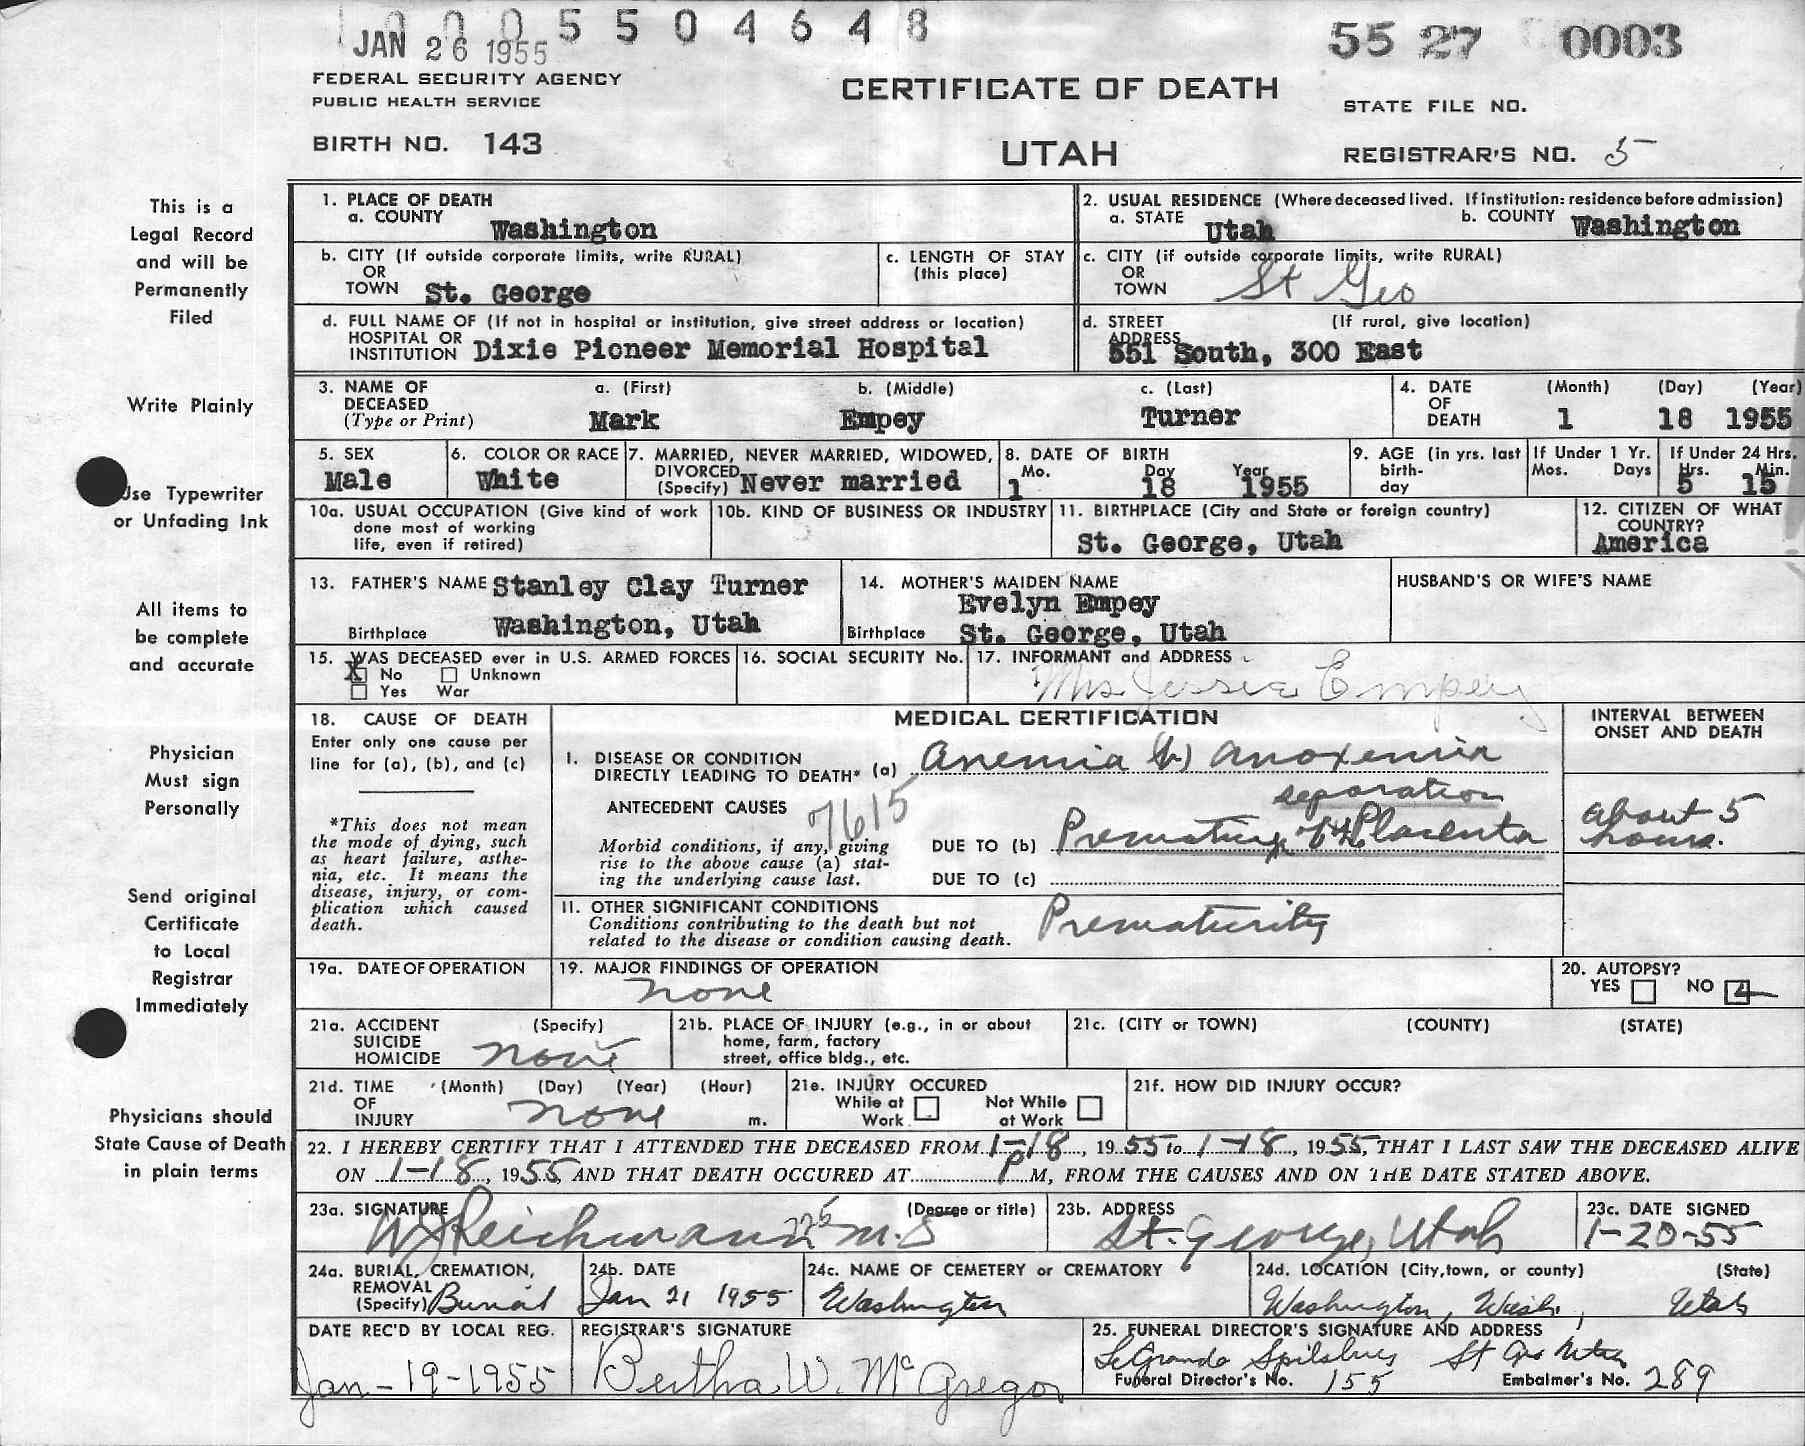 0 0 0 5 5 0 4 6 4 8
JAN 26 1955
55 27 0003
FEDERAL SECURITY AGENCY
PUBLIC HEALTH SERVICE
CERTIFICATE OF DEATH
STATE FILE NO.
BIRTH NO. 143
UTAH
REGISTRAR'S NO. 5
This is a
Legal Record
and will be
Permanently
Filed
Write Plainly
Use Typewriter
or Unfading Ink
All items to
be complete
and accurate
Physician
Must sign
Personally
Send original
Certificate
to Local
Registrar
Immediately
Physicians should
State Cause of Death
in plain terms
1. PLACE OF DEATH
a. COUNTY Washington
2. USUAL RESIDENCE (Where deceased lived. If institution: residence before admission)
a. STATE Utah b. COUNTY Washington
b. CITY (If outside corporate limits, write RURAL)
OR
TOWN St. George
c. LENGTH OF STAY
(this place)
c. CITY (if outside corporate limits, write RURAL)
OR
TOWN St Geo
d. FULL NAME OF (If not in hospital or institution, give street address or location)
HOSPITAL OR
INSTITUTION Dixie Pioneer Memorial Hospital
d. STREET (If rural, give location)
ADDRESS
551 South, 300 East
3. NAME OF DECEASED (Type or Print)
a. (First) b. (Middle) c. (Last)
Mark Empey Turner
4. DATE OF DEATH (Month) (Day) (Year)
1 18 1955
5. SEX
Male
6. COLOR OR RACE
White
7. MARRIED, NEVER MARRIED, WIDOWED,
DIVORCED
(Specify) Never married
8. DATE OF BIRTH
Mo. Day Year
1 18 1955
9. AGE (in yrs. last
birth-
day
If Under 1 Yr.
Mos. Days
If Under 24 Hrs.
Hrs. Min.
5 15
10a. USUAL OCCUPATION (Give kind of work
done most of working
life, even if retired)
10b. KIND OF BUSINESS OR INDUSTRY
11. BIRTHPLACE (City and State or foreign country)
St. George, Utah
12. CITIZEN OF WHAT
COUNTRY?
America
13. FATHER'S NAME Stanley Clay Turner
Birthplace Washington, Utah
14. MOTHER'S MAIDEN NAME
Evelyn Empey
Birthplace St. George, Utah
HUSBAND'S OR WIFE'S NAME
15. WAS DECEASED ever in U.S. ARMED FORCES
X No Unknown
Yes War
16. SOCIAL SECURITY No.
17. INFORMANT and ADDRESS
Mrs Jessie Empey
18. CAUSE OF DEATH
Enter only one cause per
line for (a), (b), and (c)
*This does not mean
the mode of dying, such
as heart failure, asthe-
nia, etc. It means the
disease, injury, or com-
plication which caused
death.
MEDICAL CERTIFICATION
INTERVAL BETWEEN
ONSET AND DEATH
I. DISEASE OR CONDITION
DIRECTLY LEADING TO DEATH* (a) Anemia (b) anoxemia
ANTECEDENT CAUSES 7615
Morbid conditions, if any, giving
rise to the above cause (a) stat-
ing the underlying cause last.
separation
DUE TO (b) Premature of the Placenta
about 5
hours.
DUE TO (c)
II. OTHER SIGNIFICANT CONDITIONS
Conditions contributing to the death but not
related to the disease or condition causing death.
Prematurity
19a. DATE OF OPERATION
19. MAJOR FINDINGS OF OPERATION
none
20. AUTOPSY?
YES NO
21a. ACCIDENT (Specify)
SUICIDE
HOMICIDE none
21b. PLACE OF INJURY (e.g., in or about
home, farm, factory
street, office bldg., etc.
21c. (CITY or TOWN) (COUNTY) (STATE)
21d. TIME (Month) (Day) (Year) (Hour)
OF
INJURY none m.
21e. INJURY OCCURED
While at Work Not While at Work
21f. HOW DID INJURY OCCUR?
22. I HEREBY CERTIFY THAT I ATTENDED THE DECEASED FROM 1-18, 1955 to 1-18, 1955, THAT I LAST SAW THE DECEASED ALIVE
ON 1-18, 1955, AND THAT DEATH OCCURED AT P M, FROM THE CAUSES AND ON THE DATE STATED ABOVE.
23a. SIGNATURE (Degree or title)
Reichmann M.D
23b. ADDRESS
St. George, Utah
23c. DATE SIGNED
1-20-55
24a. BURIAL, CREMATION,
REMOVAL
(Specify) Burial
24b. DATE
Jan 21 1955
24c. NAME OF CEMETERY or CREMATORY
Washington
24d. LOCATION (City, town, or county) (State)
Washington, Wash., Utah
DATE REC'D BY LOCAL REG.
Jan-19-1955
REGISTRAR'S SIGNATURE
Bertha W. McGregor
25. FUNERAL DIRECTOR'S SIGNATURE AND ADDRESS
LeGrande Spilsbury St Geo Utah
Funeral Director's No. 155 Embalmer's No. 289